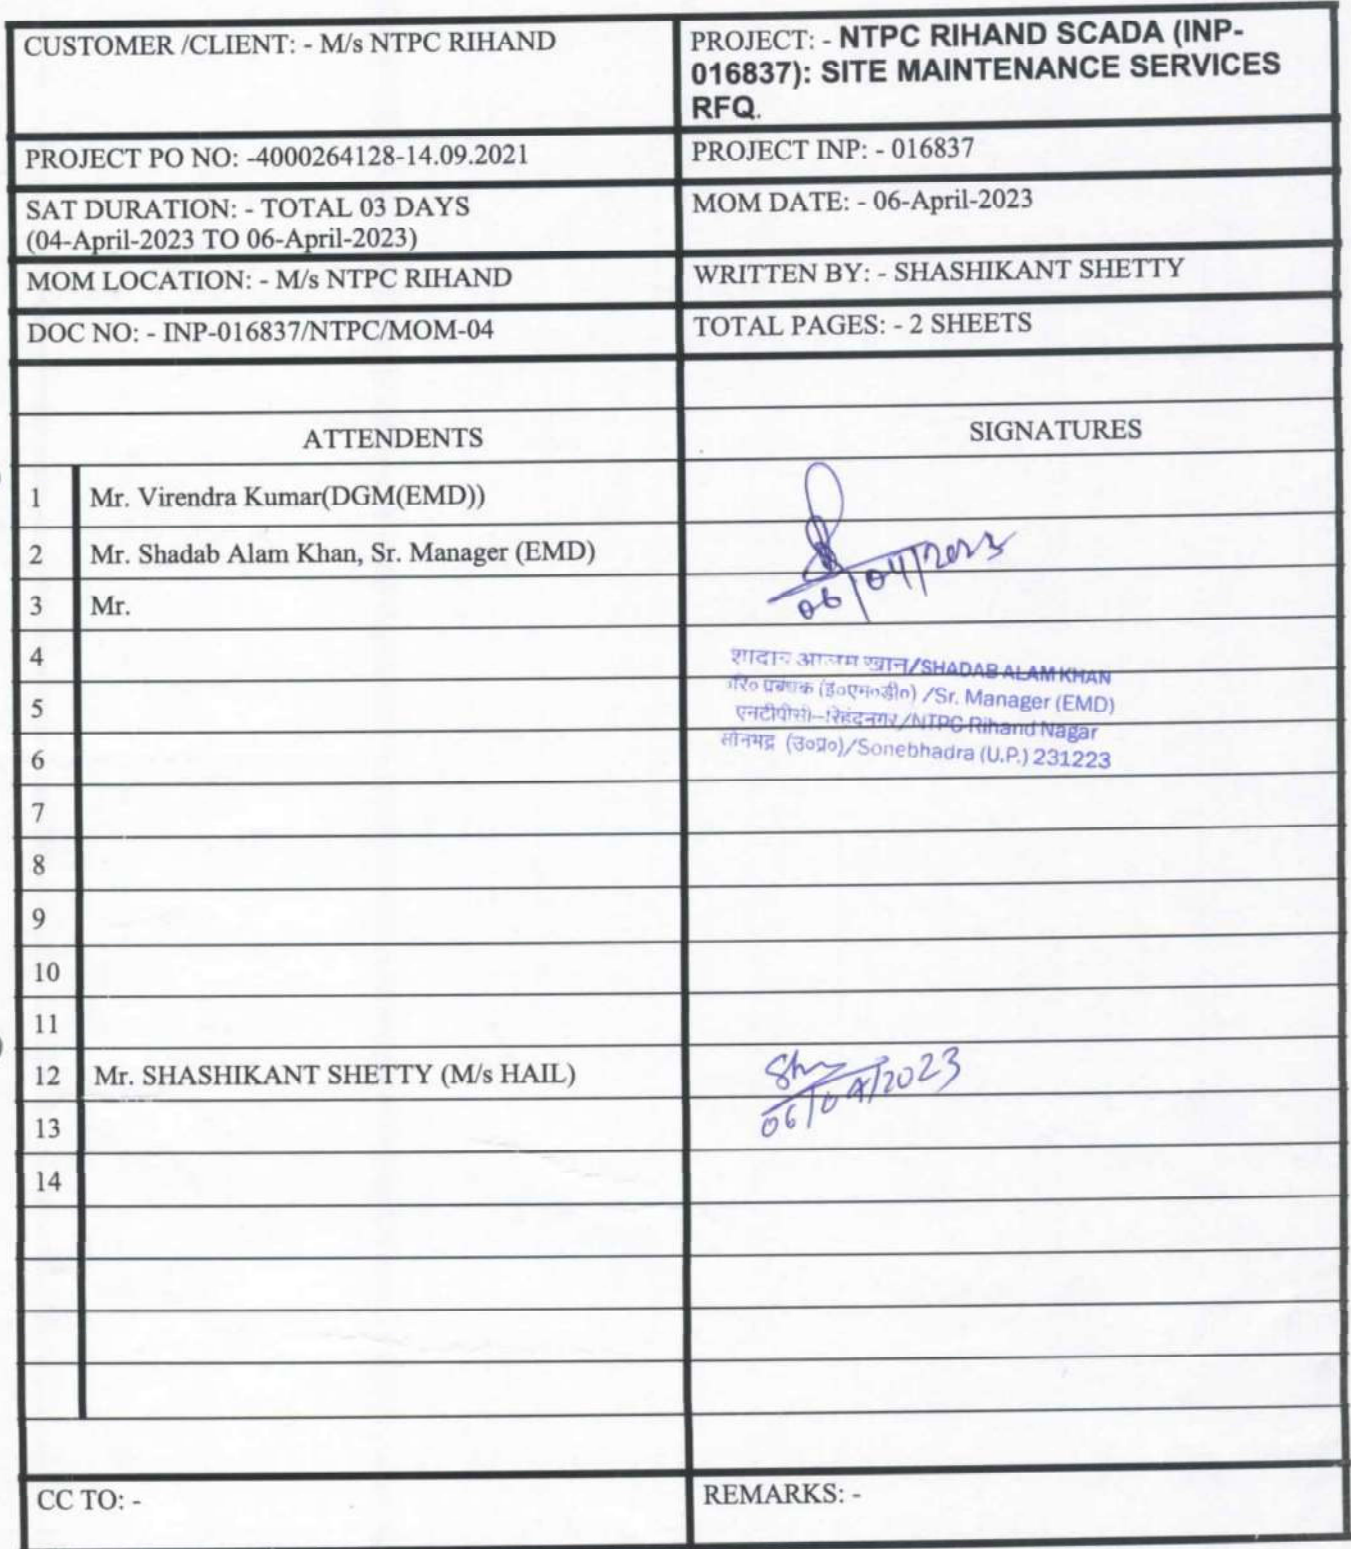 CUSTOMER /CLIENT: - M/s NTPC RIHAND
PROJECT: - NTPC RIHAND SCADA (INP-
016837): SITE MAINTENANCE SERVICES
RFQ.
PROJECT PO NO: -4000264128-14.09.2021
PROJECT INP: - 016837
SAT DURATION: - TOTAL 03 DAYS
(04-April-2023 TO 06-April-2023)
MOM DATE: - 06-April-2023
MOM LOCATION: - M/s NTPC RIHAND
WRITTEN BY: - SHASHIKANT SHETTY
DOC NO: - INP-016837/NTPC/MOM-04
TOTAL PAGES: - 2 SHEETS
ATTENDENTS
SIGNATURES
1 Mr. Virendra Kumar(DGM(EMD))
2 Mr. Shadab Alam Khan, Sr. Manager (EMD)
06/04/2023
3 Mr.
4
शादाब आलम खान/SHADAB ALAM KHAN
वरि० प्रबंधक (इ०एम०डी०) /Sr. Manager (EMD)
5
एनटीपीसी-रिहंदनगर/NTPC Rihand Nagar
सोनभद्र (उ०प्र०)/Sonebhadra (U.P.) 231223
6
7
8
9
10
11
12 Mr. SHASHIKANT SHETTY (M/s HAIL)
06/04/2023
13
14
CC TO: -
REMARKS: -